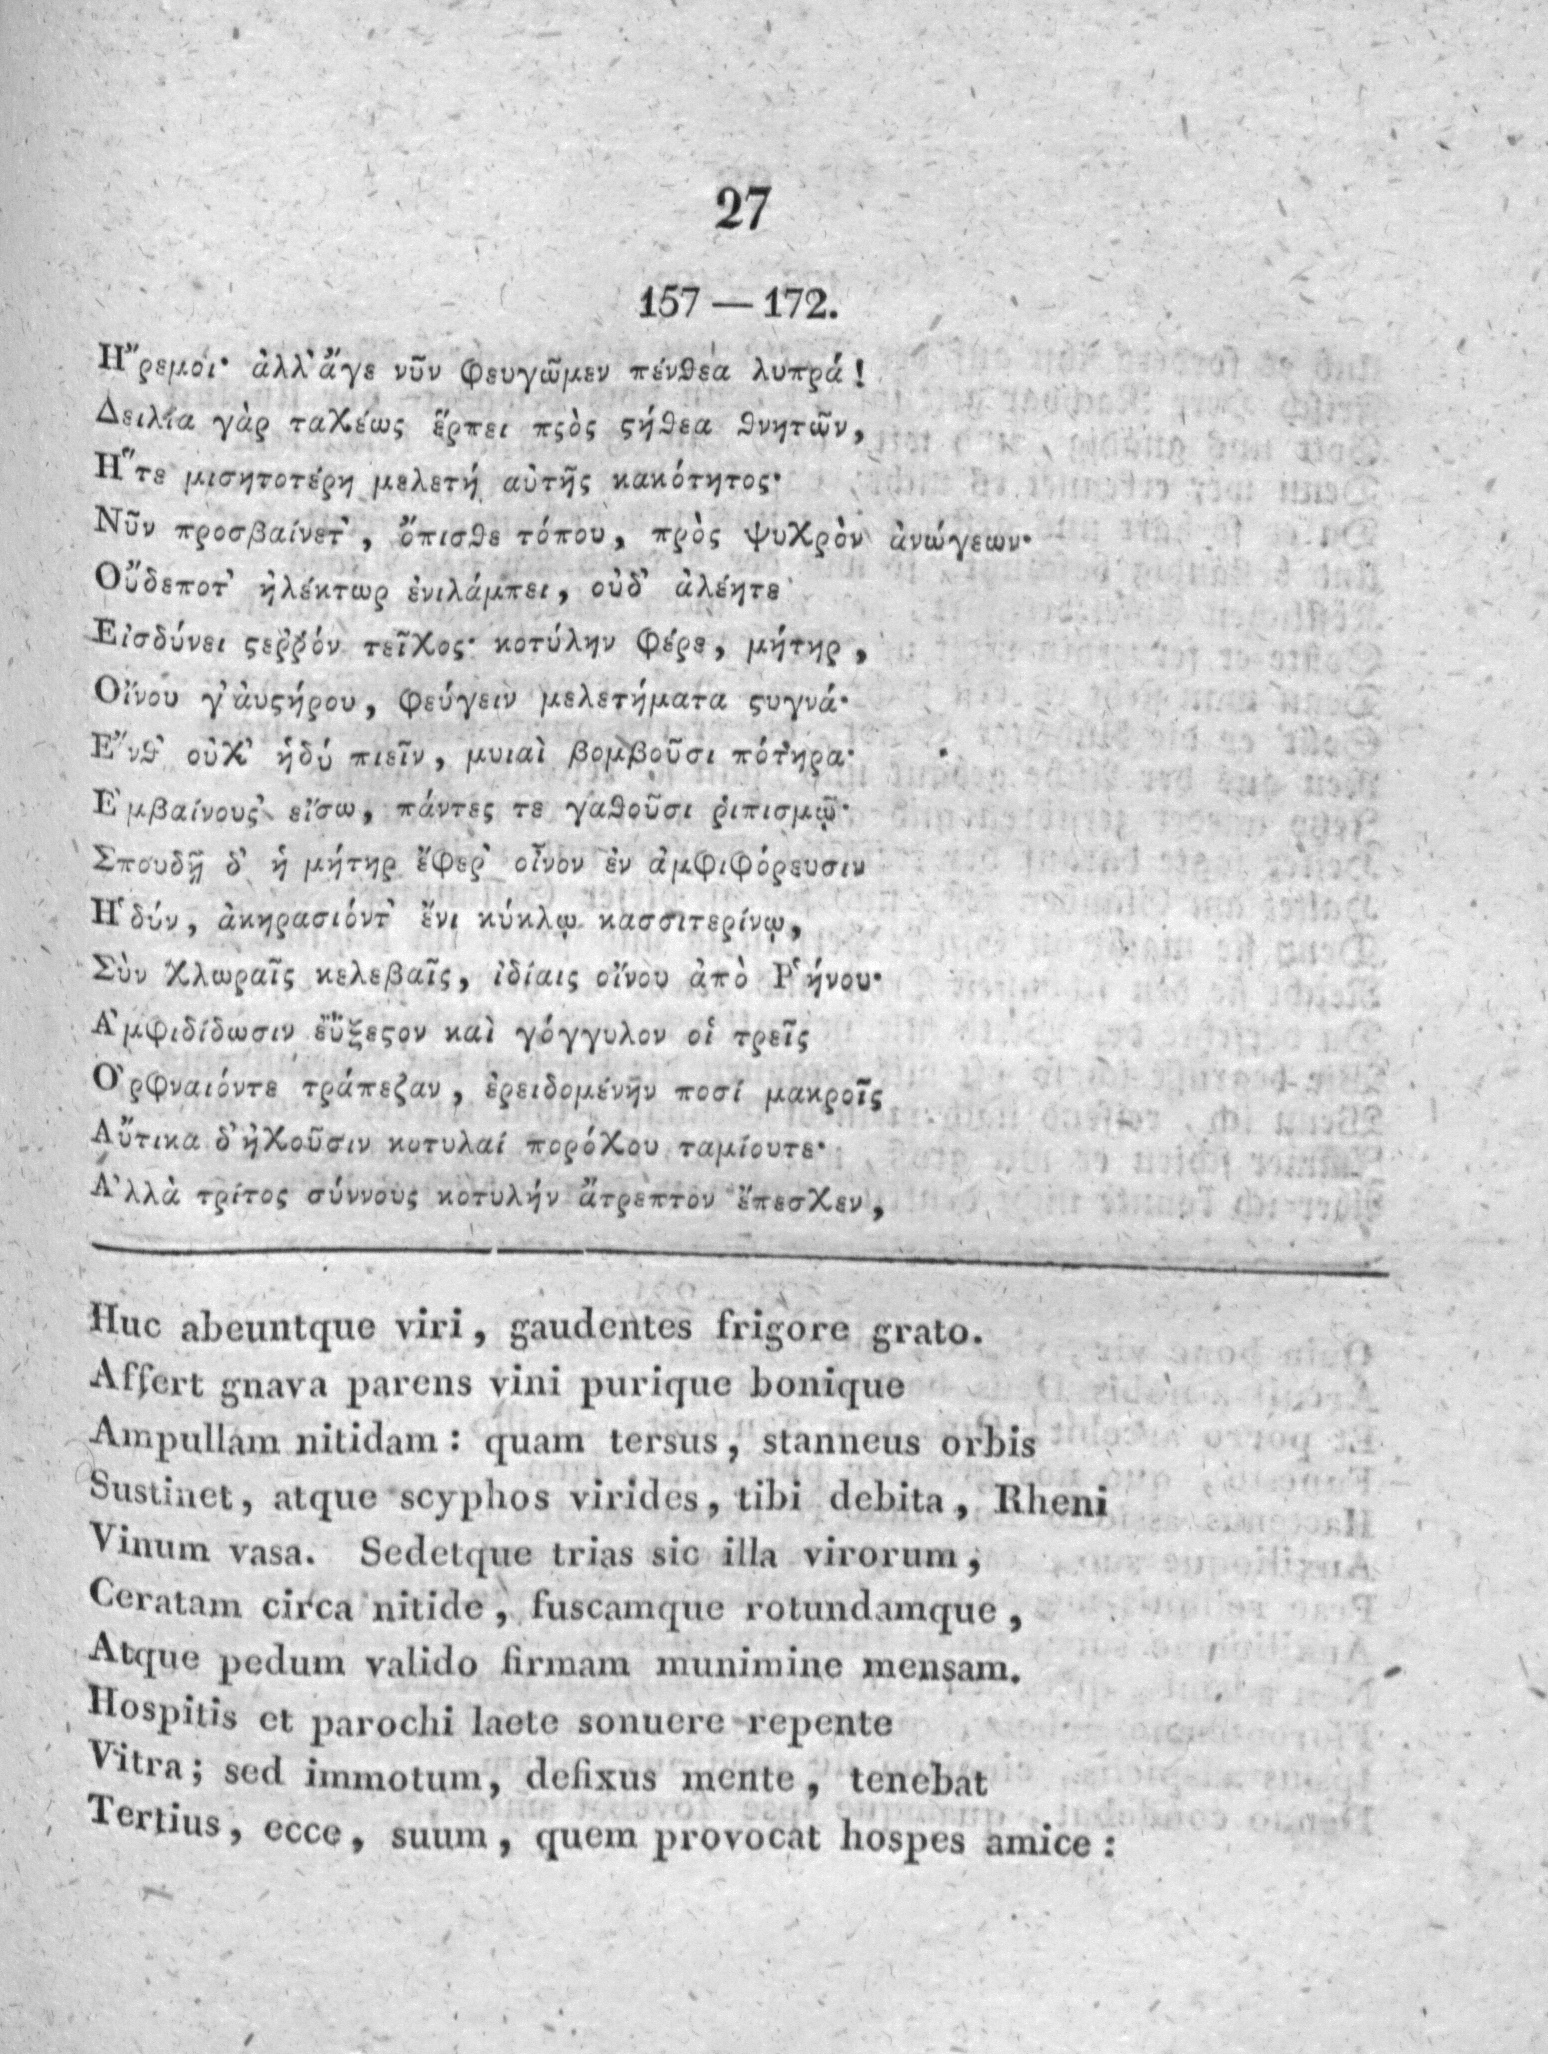 27
157 — 172.
Ἤρεμοι· ἀλλ᾽ ἄγε νῦν φευγῶμεν πένθεα λυπρά!
Δειλία γὰρ ταχέως ἕρπει πϛὸς ϛήθεα θνητῶν,
Ἥτε μισητοτέρη μελετή αὐτῆς κακότητος·
Νῦν προσβαίνετ᾽, ὄπισθε τόπου, πρὸς ψυχρὸν ἀνώγεων·
Οὔδεποτ᾽ ἠλέκτωρ ἐνιλάμπει, οὐδ᾽ ἀλέητε
Εἰσδύνει ϛεῤῥόν τεῖχος· κοτύλην φέρε, μήτηρ,
Οἴνου γ᾽ ἀυϛήρου, φεύγειν μελετήματα ϛυγνά·
Ἔνθ᾽ οὐχ᾽ ἡδύ πιεῖν, μυιαὶ βομβοῦσι πότηρα·
Ἐμβαίνους᾽ εἴσω, πάντες τε γαθοῦσι ῥιπισμῷ·
Σπουδῇ δ᾽ ἡ μήτηρ ἔφερ᾽ οἶνον ἐν ἀμφιφόρευσιν
Ἡδύν, ἀκηρασιόντ᾽ ἔνι κύκλῳ κασσιτερίνῳ,
Σὺν χλωραῖς κελεβαῖς, ἰδίαις οἴνου ἀπὸ Ῥήνου·
Ἀμφιδίδωσιν ἐΰξεϛον καὶ γόγγυλον οἱ τρεῖς
Ὀρφναιόντε τράπεζαν, ἐρειδομένην ποσί μακροῖς
Αὔτικα δ᾽ ἠχοῦσιν κοτυλαί πορόχου ταμίουτε·
Ἀλλὰ τρίτος σύννους κοτυλήν ἄτρεπτον ἔπεσχεν,
Huc abeuntque viri, gaudentes frigore grato.
Affert gnava parens vini purique bonique
Ampullam nitidam: quam tersus, stanneus orbis
Sustinet, atque scyphos virides, tibi debita, Rheni
Vinum vasa. Sedetque trias sic illa virorum,
Ceratam circa nitide, fuscamque rotundamque,
Atque pedum valido firmam munimine mensam.
Hospitis et parochi laete sonuere repente
Vitra; sed immotum, defixus mente, tenebat
Tertius, ecce, suum, quem provocat hospes amice: